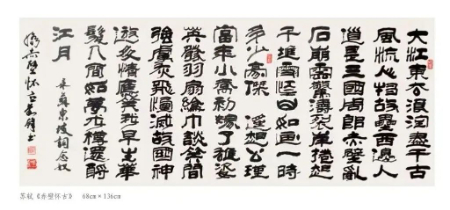 大江東去浪淘盡千古
風流人物故壘西邊人
道是三國周郎赤壁亂
石崩雲驚濤裂岸捲起
千堆雪江山如畫一時
多少豪傑 遙想公瑾
當年小喬初嫁了雄姿
英發羽扇綸巾談笑間
強虜灰飛煙滅故國神
遊多情應笑我早生華
髮人間如夢一樽還酹
江月 蘇東坡詞念奴
嬌赤壁懷古
《赤壁怀古》 68cm×136cm